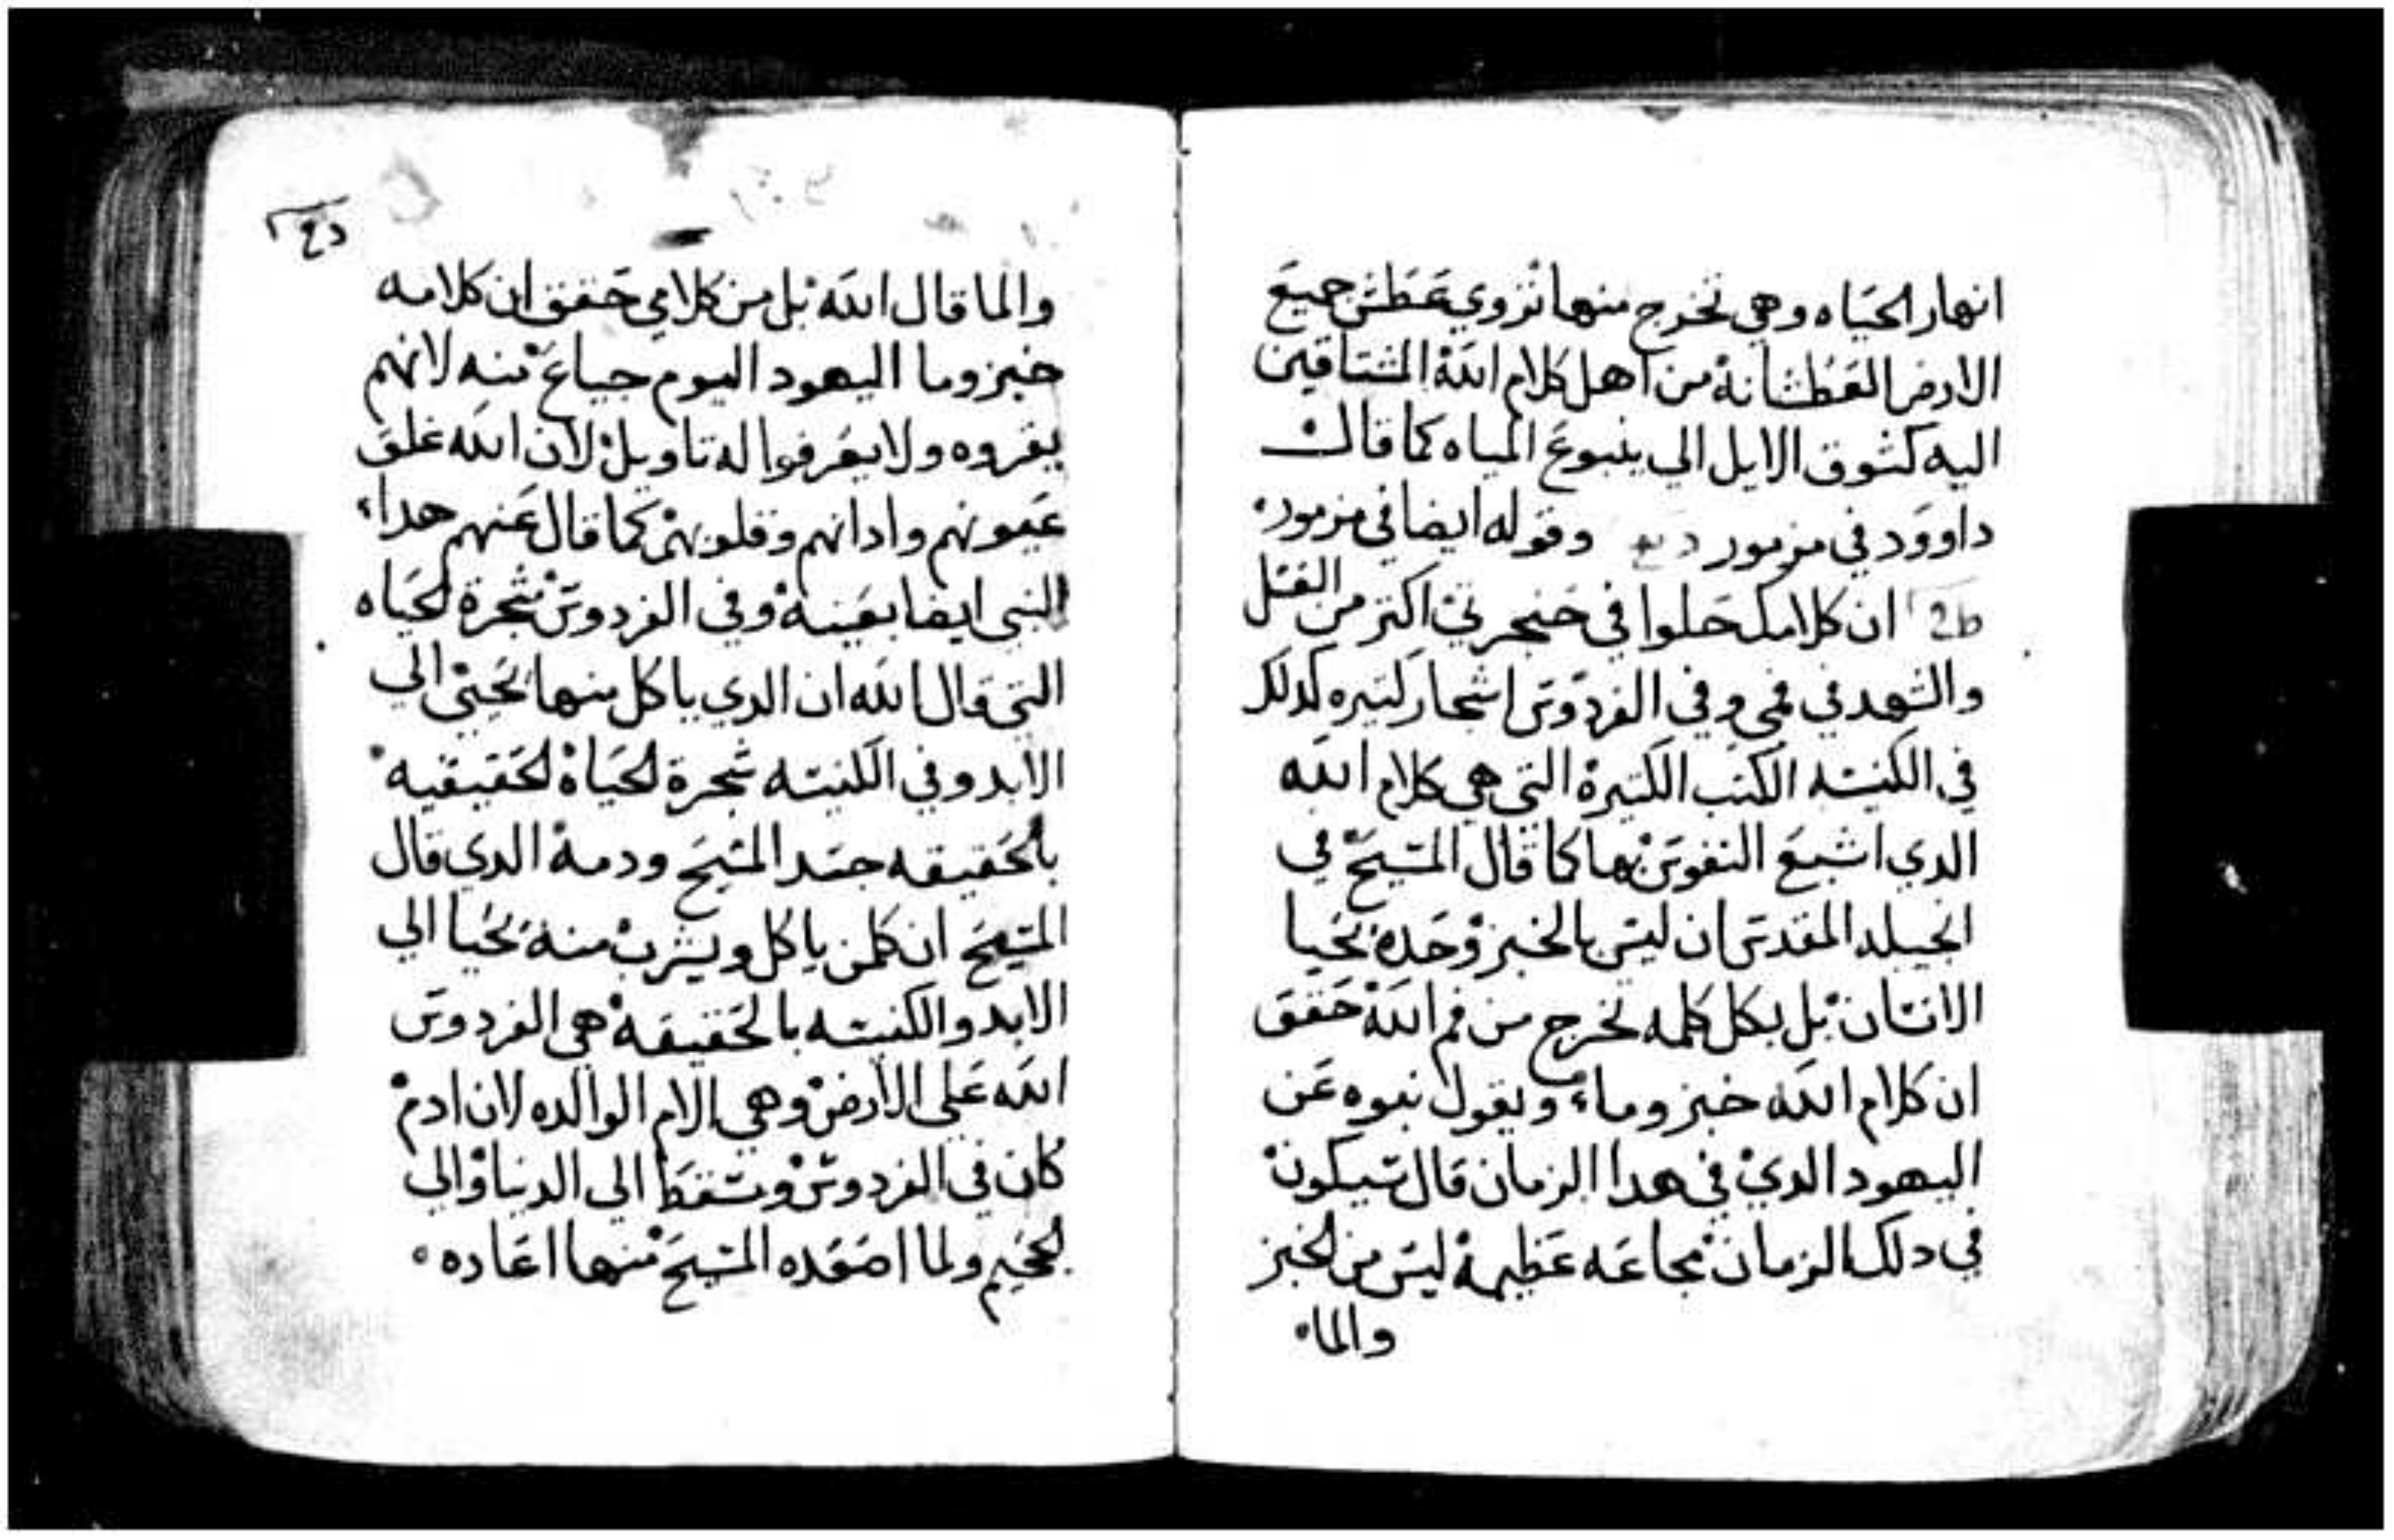 انهار الحياه وهي تخرج منها تروي عطش جميع
الارض العطشانة من اهل كلام الله المشتاقين
اليه كشوق الايل الي ينبوع المياه كما قال
داوود في مزمور وقوله ايضا في مزمور
ان كلامك حلوا في حنجرتي اكتر من العسل
والشهد في فمي وفي الفردوس اشجار كتيره كدلك
في الكنيسه الكتب الكتيرة التي هي كلام الله
الدي اشبع النفوس بها كما قال المسيح في
انجيله المقدس ان ليس بالخبز وحده يحيا
الانسان بل بكل كلمه تخرج من فم الله حقق
ان كلام الله خبز وماء ويقول نبوه عن
اليهود الدي في هدا الزمان قال سيكون
في دلك الزمان مجاعه عظيمة ليس من الخبز
والما
والما قال الله بل من كلامي حقق ان كلامه
خبز وما اليهود اليوم جياع منه لانهم
يقروه ولا يعرفوا له تاويل لان الله غلق
عيونهم وادانهم وقلوبهم كما قال عنهم هدا
النبي ايضا بعينة وفي الفردوس شجرة الحياه
التي قال الله ان الدي ياكل منها يحيي الي
الابد وفي الكنيسه شجرة الحياة الحقيقيه
بالحقيقه جسد المسيح ودمة الدي قال
المسيح ان كلمن ياكل ويشرب منة يحيا الي
الابد والكنيسه بالحقيقة هي الفردوس
الله علي الارض وهي الام الوالده لان ادم
كان في الفردوس وسقط الي الدنيا والي
الجحيم ولما اصعده المسيح منها اعاده